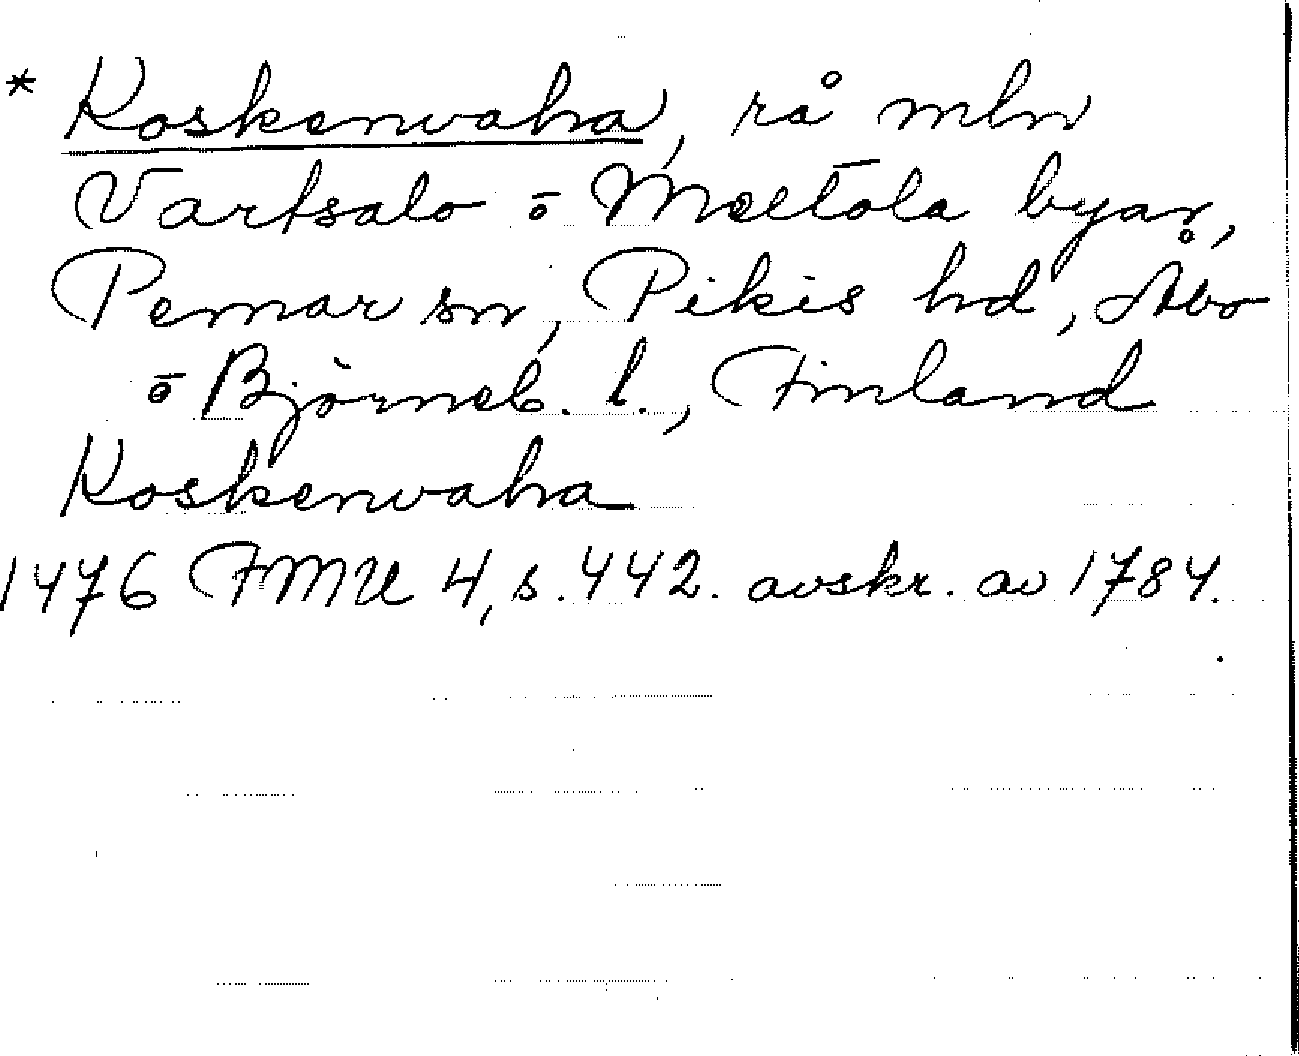 * Koskenwaha, rå mln
Vartsalo o Meltola byar,
Pemar sn, Pikis hd, Åbo
o Björneb. l., Finland
Koskenwaha
1476 FMU 4, s. 442. avskr. av 1784.